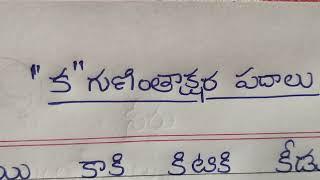 "క" గుణింతాక్షర పదాలు
కాకి కిటికి